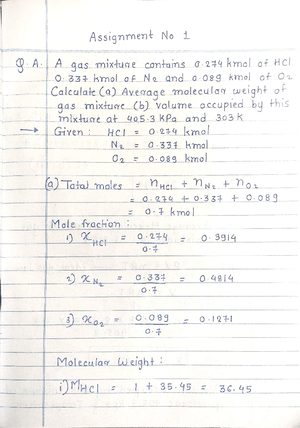 Assignment No 1
Q.A. A gas mixture contains 0.274 kmol of HCl
0.337 kmol of N2 and 0.089 kmol of O2
Calculate (a) Average molecular weight of
gas mixture (b) Volume occupied by this
mixture at 405.3 KPa and 303 K
→ Given : HCl = 0.274 kmol
N2 = 0.337 kmol
O2 = 0.089 kmol
(a) Total moles = nHCl + nN2 + nO2
= 0.274 + 0.337 + 0.089
= 0.7 kmol
Mole fraction :
1) xHCl = 0.274 / 0.7 = 0.3914
2) xN2 = 0.337 / 0.7 = 0.4814
3) xO2 = 0.089 / 0.7 = 0.1271
Molecular Weight :
i) MHCl = 1 + 35.45 = 36.45